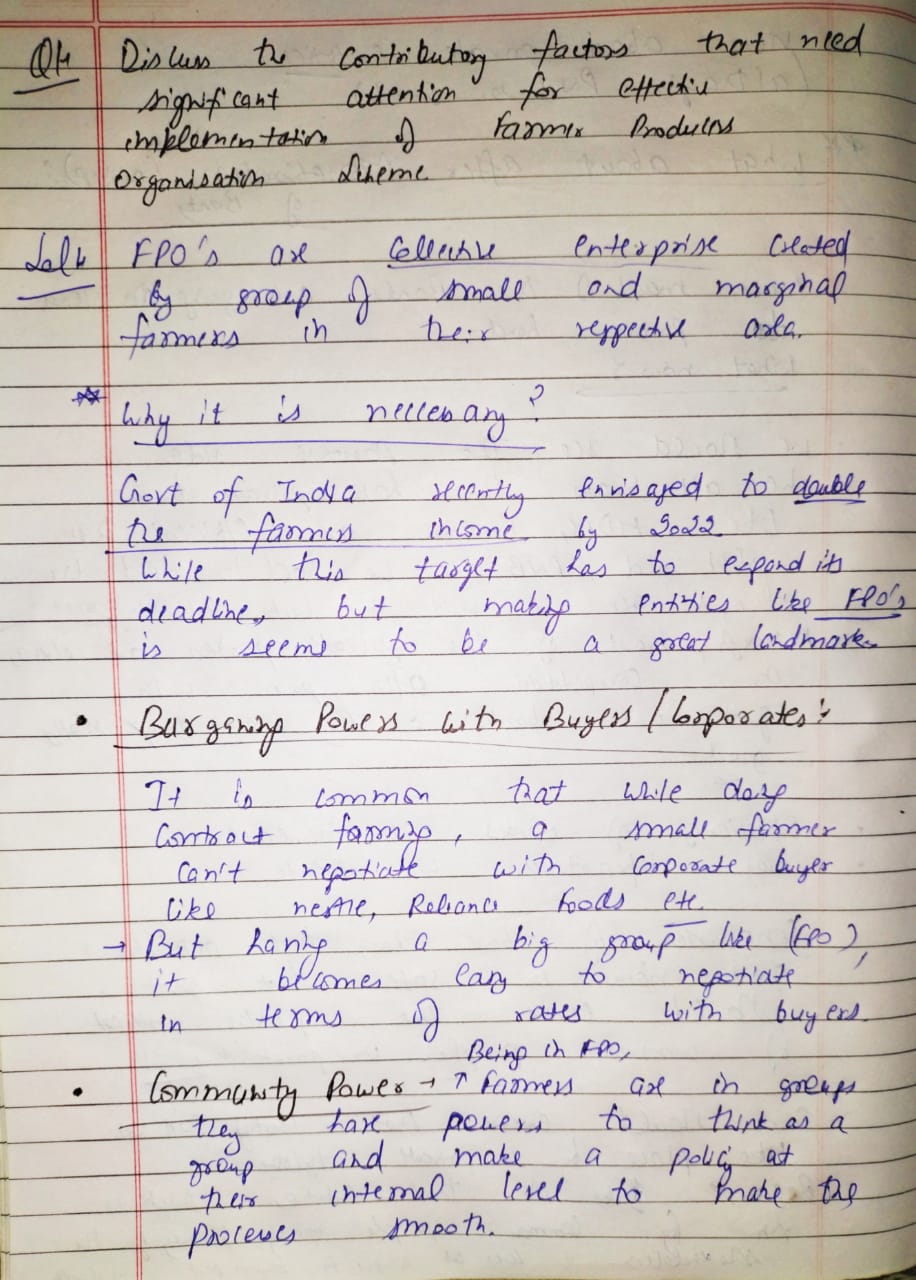 Q14 Discuss the Contributory factors that need
significant attention for effective
implementation of Farmer Producers
Organisation Scheme
Sol4 FPO's are Collective enterprise created
by group of small and marginal
farmers in their respective area.
Why it is necessary?
Govt of India recently envisaged to double
the farmers income by 2022
While this target has to expand its
deadline, but making entities like FPO's
is seems to be a great landmark.
• Bargaining Powers with Buyers / Corporates:
It is common that while doing
Contract farming, a small farmer
can't negotiate with corporate buyer
like nestle, Reliance foods etc.
→ But having a big group like (FPO),
it becomes easy to negotiate
in terms of rates with buyers.
Being in FPO,
• Community Power → ↑ farmers are in groups
they have powers to think as a
group and make a policy at
their internal level to make the
processes smooth.